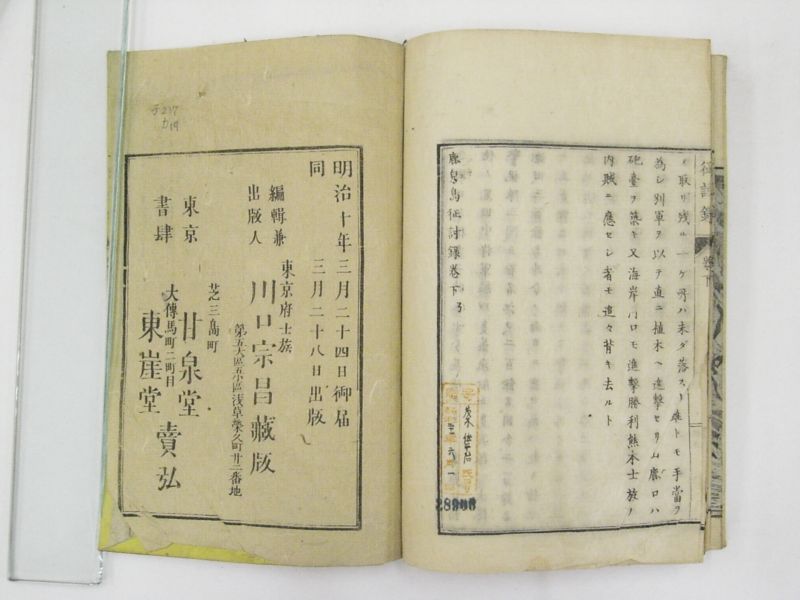 征討録
巻下
ヲ以テ直ニ植木ヘ進撃セリ山鹿口ハ
砲臺ヲ築キ又海岸川口モ進撃勝利熊本士族ノ
内賊ニ應セシ者モ追々背キ去ルト
鹿児島征討録巻下
28906
明治十年三月二十四日御届
同 三月二十八日出版
編輯兼
出版人
東京府士族
川口宗昌藏版
第五大區五小區浅草榮久町廿二番地
東京
書肆
芝三島町
甘泉堂
大傳馬町二町目
東崖堂
賣弘